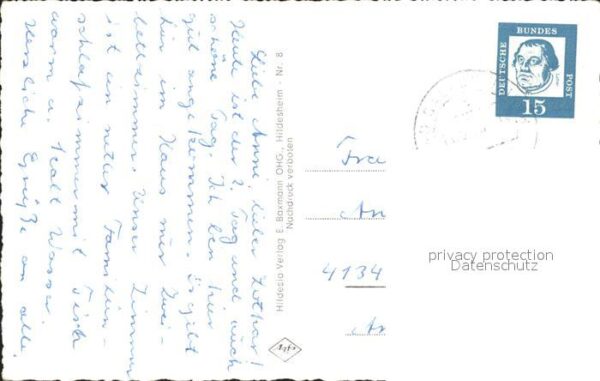 Liebe Anni, lieber Lothar!
Heute ist der 2. Tag und auch
schöne Tag. Ich bin hier
gut angekommen. Es gibt
hier im Haus nur Zwei-
bettzimmer. Unser Zimmer
ist ein netter Familien-
schlafzimmer mit Tisch
warm u. kalt Wasser.
Herzliche Grüße an alle.
Hildesia-Verlag E. Baxmann OHG., Hildesheim - Nr. 8
Nachdruck verboten
DEUTSCHE BUNDES POST
15
Frau
An
4134
privacy protection
Datenschutz